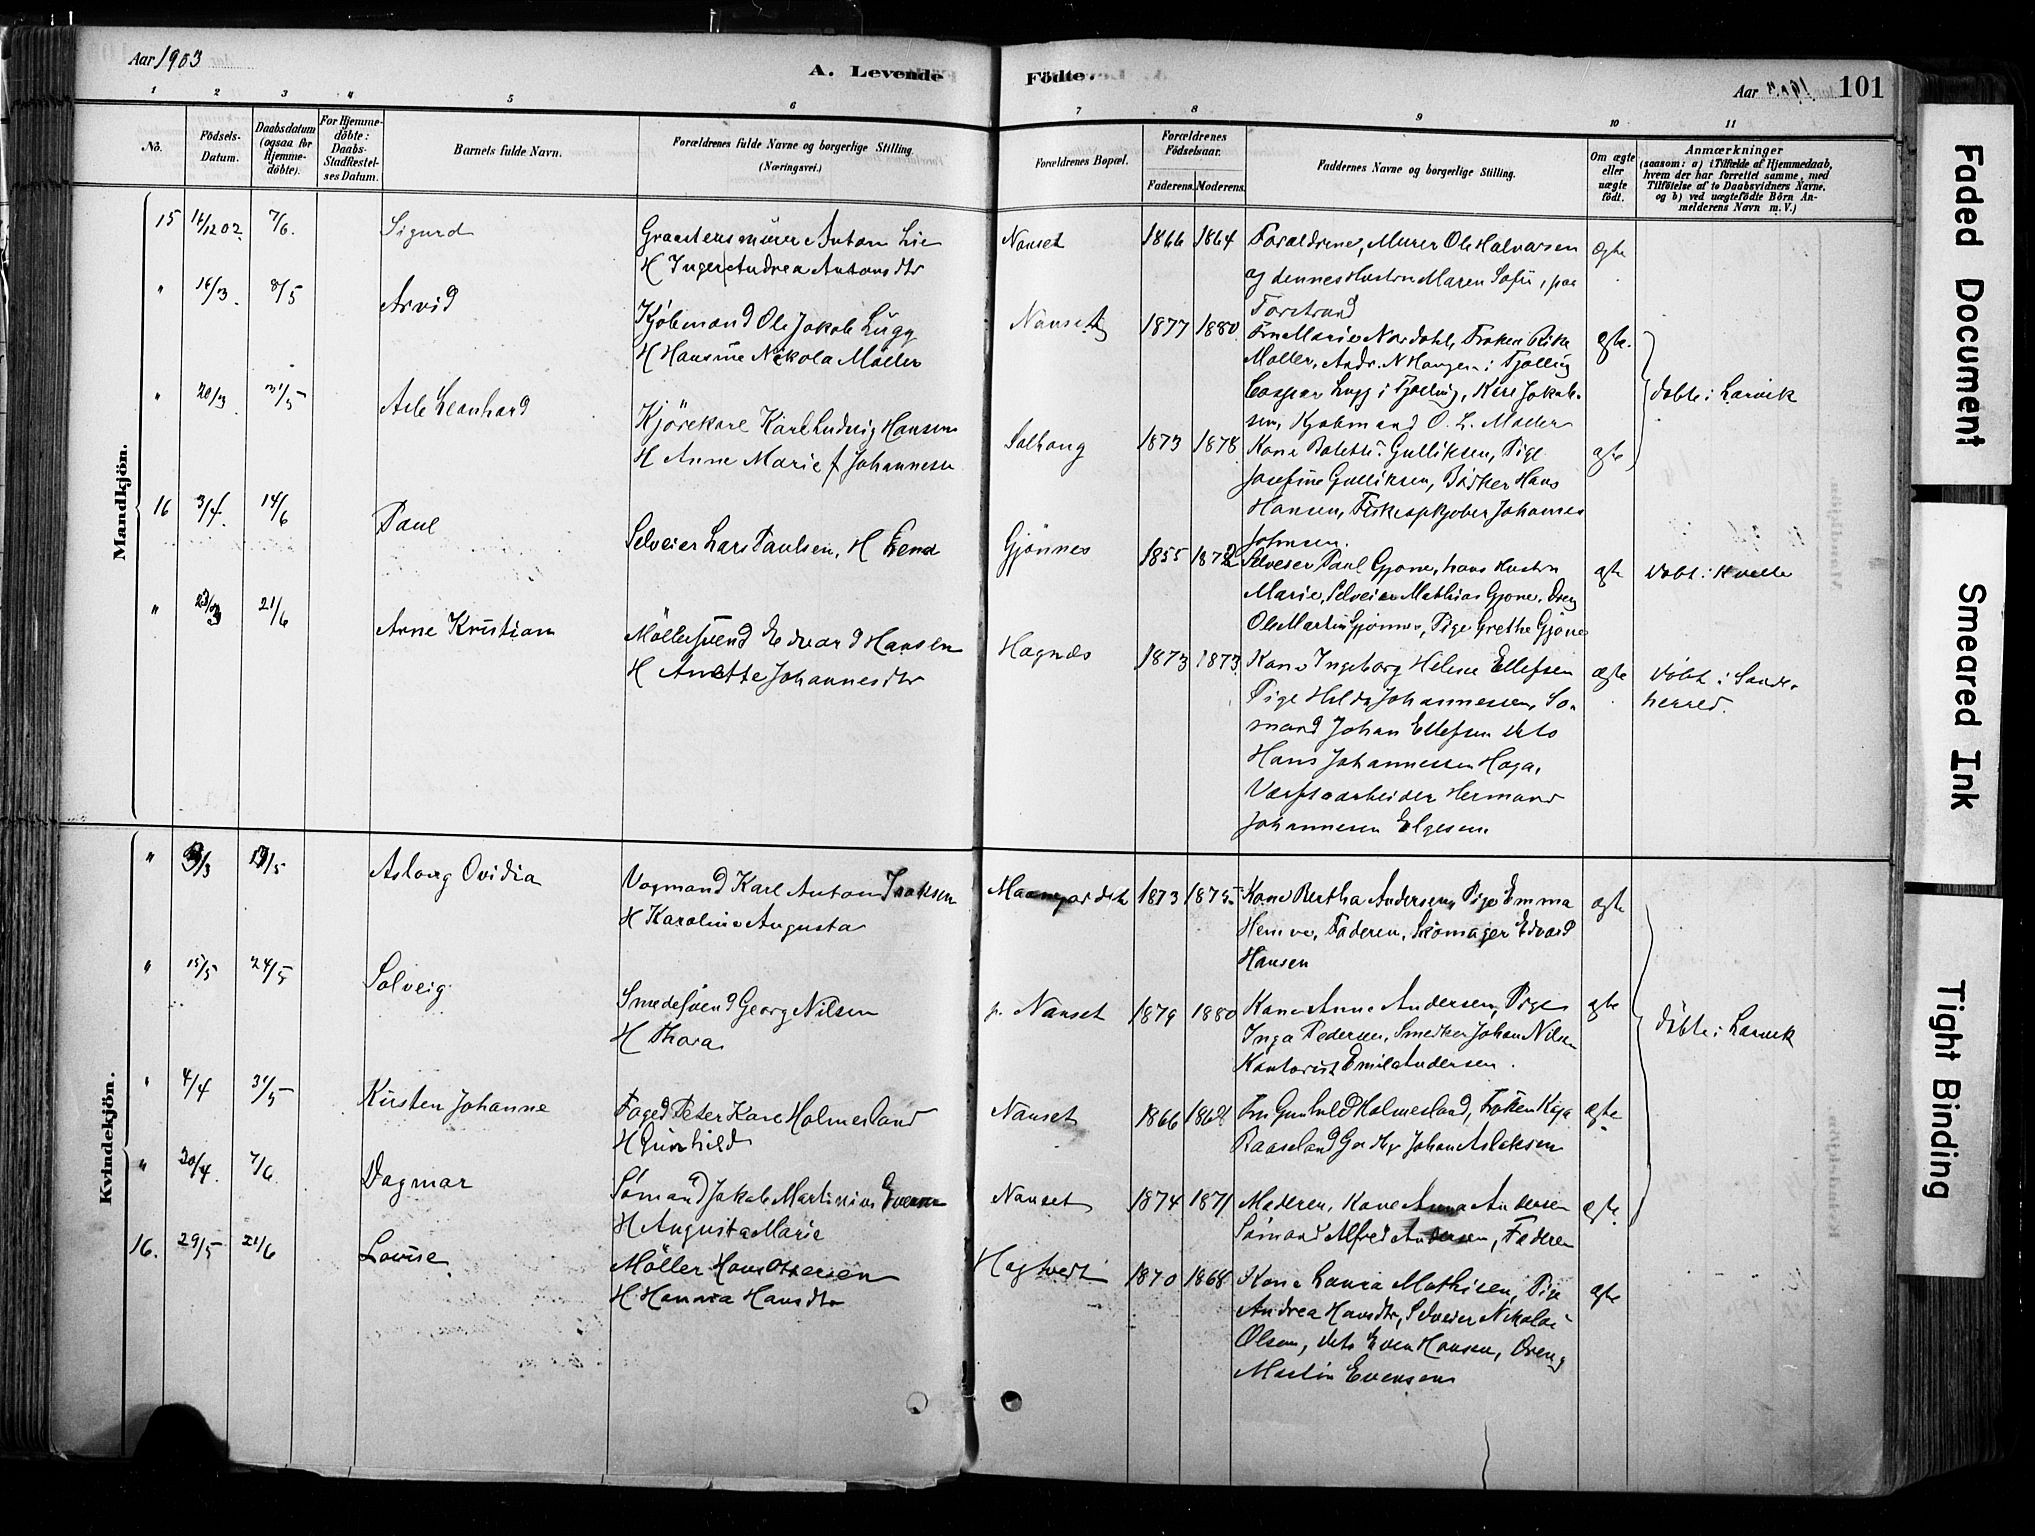 Aar 1903
A. Levende Födte.
Aar 1903 101
1 2 3 4 5 6 7 8 9 10 11
No.
Födsels-
Datum.
Daabsdatum
(ogsaa for
Hjemme-
döbte).
For Hjemme-
döbte:
Daabs-
Stadfæstel-
ses Datum.
Barnets fulde Navn.
Forældrenes fulde Navne og borgerlige Stilling.
(Næringsvei.)
Forældrenes Bopæl.
Forældrenes
Födselsaar.
Faderens. Moderens.
Faddernes Navne og borgerlige Stilling.
Om ægte
eller
uægte
födt.
Anmærkninger
(saasom: a) i Tilfælde af Hjemmedaab,
hvem der har forrettet samme, med
Tilföielse af to Daabsvidners Navne,
og b) ved uægtefödte Börn An-
melderens Navn m. V.)
Mandkjön.
15 7/6. Sigurd
Graastensmurer Anton Lie
H Inger Andrea Antonsdtr
Nanset 1866 1864
Forældrene, Murer Ole Halvorsen
og dennes Hustru Maren Sofie, paa
Torstrand
ægte
" 16/3. 8/5 Arvid
Kjöbmand Ole Jakob Lugg
H Hansine Nikola Møller
Nanset 1877 1880
Fru Marie Nordahl, Frøken Rika
Møller, Andr. N Haugen i Tjølling
Caspar Lugg i Tjølling, Karl Jakob-
sen, Kjøbmand O. L. Møller
ægte.
" 20/3 31/5 Asle Leonhard
Kjörekarl Karl Ludvig Hansen
H Anne Marie f Johannesen
Solhaug 1873 1878
Kone Bolette Gulliksen, Pige
Josefine Gulliksen, Bødker Hans
Hansen, Fiskeopkjøber Johannes
Johnsen.
ægte
døbte i Larvik
16 3/4. 14/6 Paul
Selveier Lars Paulsen, H Lena
Gjønnes 1855 1872
Selveier Paul Gjone, hans Hustru
Marie, Selveier Mathias Gjone, Dreng
Ole Martin Gjønnes, Pige Grethe Gjønes
ægte
Døbt i Kvelle
" 23/3 21/6 Arne Kristian
Möllersvend Edvard Hansen
H Anette Johannesdtr
Hagnæs 1873 1873
Kone Ingeborg Helene Ellefsen
Pige Hilda Johannessen, Sø-
mand Johan Ellefsen dito
Hans Johannessen Haga,
Værftsarbeider Hermand
Johannesen Elgesem
ægte
Døbt i Sande-
herred.
Kvindekjön.
" Aslaug Ovidia
Vognmand Karl Anton Isaksen
H Karoline Augusta
1873 1875
Kone Bertha Andersen, Pige Emma
Faderen, Skomager Edvard
Hansen
ægte
" 15/5 24/5 Solveig
Smedesvend Georg Nilsen
H Thora
p. Nanset 1879 1880
Kone Anne Andersen, Pige
Inga Pedersen, Johan Nilsen
Kontorist Emil Andersen.
ægte
døbte i Larvik
" 4/4 31/5 Kirsten Johanne
Foged Peter Kare Holmesland
H Gunhild
Nanset 1866 1868
Fru Gunhild Holmesland, Frøken Kaja
Raaseland Johan Aslaksen
ægte
" 20/4. 7/6. Dagmar
Sømand Jakob Martinius
H Augusta Marie
Nanset 1874 1871
Moderen, Kone Anna Andersen
Sømand Alfred Andersen, Faderen
ægte.
16. 29/5 21/6 Louise.
Möller Hans Ottersen
H Hanna Hansdtr
Hagtvedt 1870 1868
Kone Laura Mathisen, Pige
Andrea Hansdtr, Selveier Nikolai
Olsen, dito Even Hansen, Dreng
Martin Evensen
ægte
Faded Document
Smeared Ink
Tight Binding